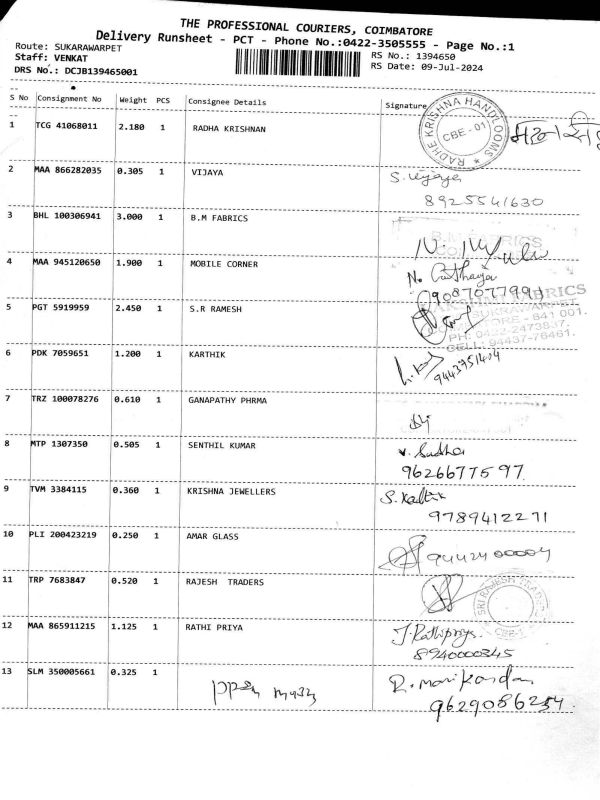 THE PROFESSIONAL COURIERS, COIMBATORE
Delivery Runsheet - PCT - Phone No.:0422-3505555 - Page No.:1
Route: SUKARAWARPET
RS No.: 1394650
Staff: VENKAT
RS Date: 09-Jul-2024
DRS No.: DCJB139465001
S No Consignment No Weight PCS Consignee Details Signature
1 TCG 41068011 2.180 1 RADHA KRISHNAN
RADHE KRISHNA HANDLOOMS
CBE-01
2 MAA 866282035 0.305 1 VIJAYA S. Vijaya
8925541630
3 BHL 100306941 3.000 1 B.M FABRICS
4 MAA 945120650 1.900 1 MOBILE CORNER
5 PGT 5919959 2.450 1 S.R RAMESH
SUKRAWARPET
641 001.
PH: 0422-2473837.
CELL: 94437-76461.
6 PDK 7059651 1.200 1 KARTHIK
9443951404
7 TRZ 100078276 0.610 1 GANAPATHY PHRMA
8 MTP 1307350 0.505 1 SENTHIL KUMAR v. Sudha
9626677597
9 TVM 3384115 0.360 1 KRISHNA JEWELLERS S. Karthik
9789412271
10 PLI 200423219 0.250 1 AMAR GLASS 9442400004
11 TRP 7683847 0.520 1 RAJESH TRADERS
SRI RAJESH TRADERS
CBE-1
12 MAA 865911215 1.125 1 RATHI PRIYA J. Rathipriya
8940000345
13 SLM 350005661 0.325 1 R. Manikandan
9629086254